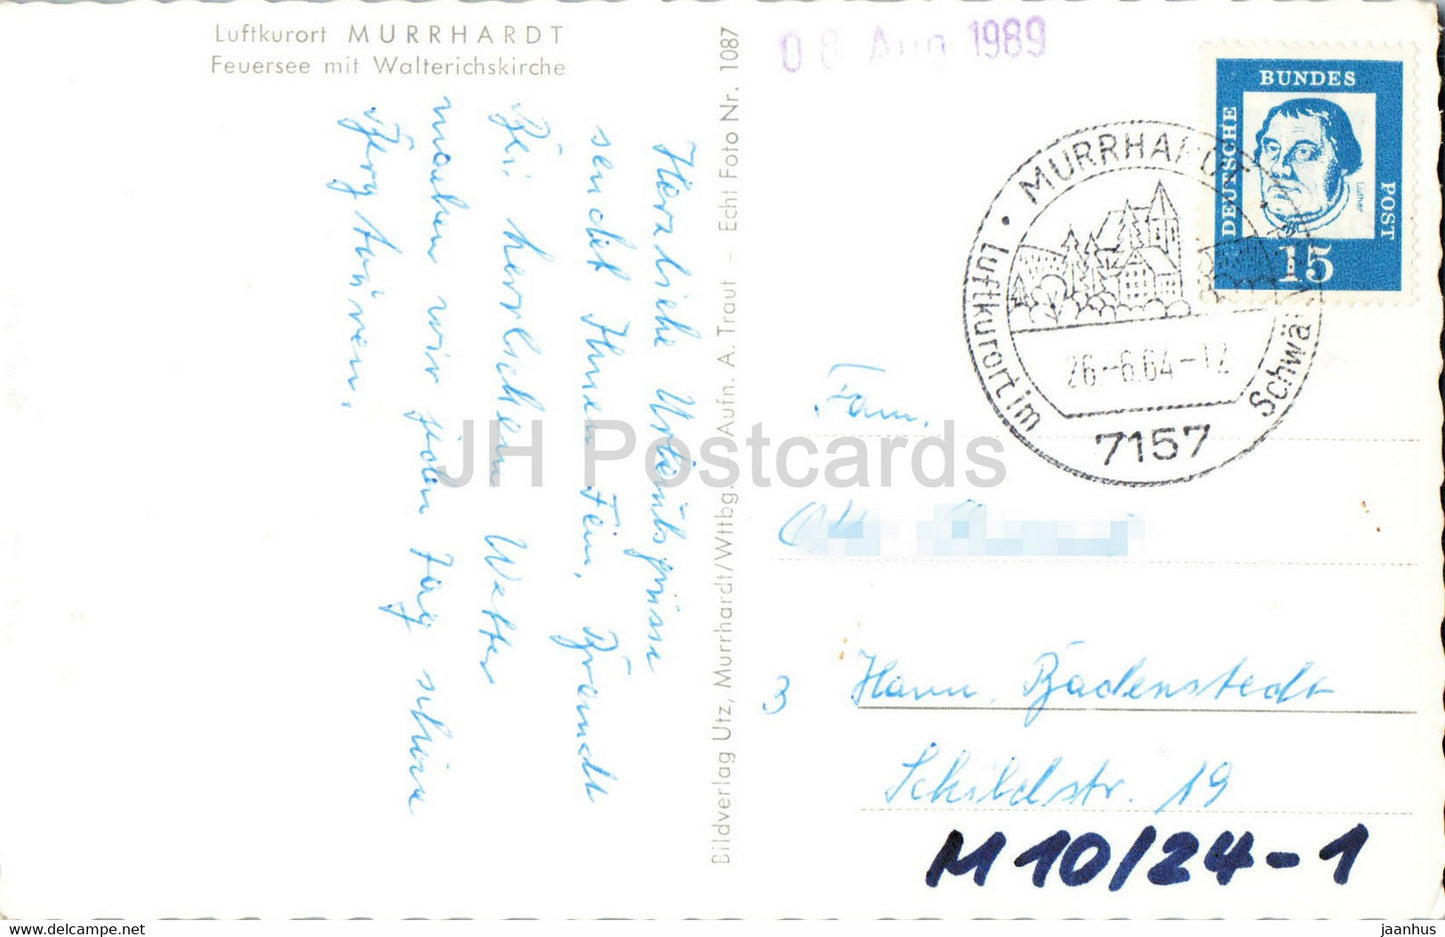 Luftkurort MURRHARDT
Feuersee mit Walterichskirche
08 Aug 1989
DEUTSCHE
BUNDES
POST
Luther
15
MURRHARDT
Luftkurort im
Schwä
26.-6.64-12
7157
Herzliche Urlaubsgrüsse
sendet Ihnen Fam. Brandt
Bei herrlichem Wetter
machen wir jeden Tag schöne
Bildverlag Utz, Murrhardt/Wttbg. Aufn. A. Traut - Echt Foto Nr. 1087
Fam.
3 Hann. Badenstedt
Schildstr. 19
M 10/24-1
JH Postcards
hippostcard.com
jaanhus